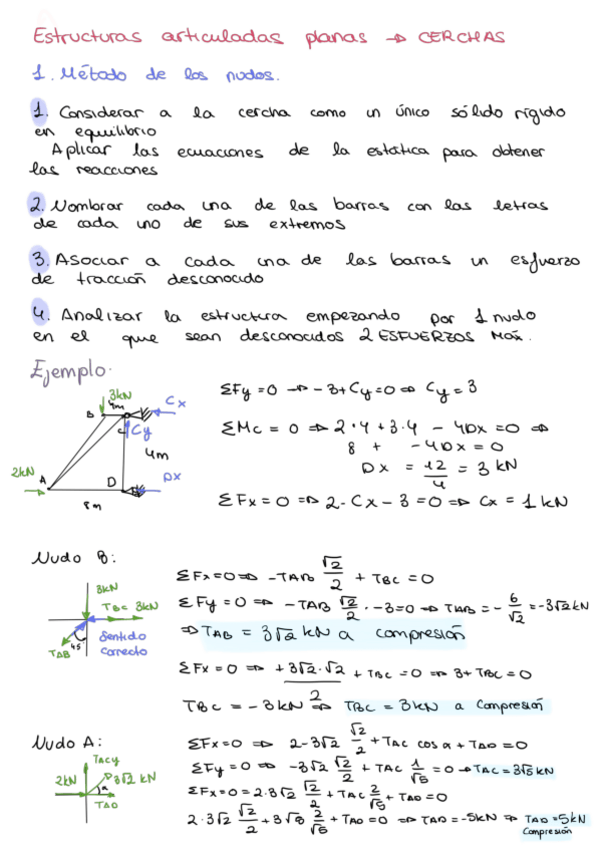 Estructuras articuladas planas → CERCHAS
1. Método de los nudos.
1. Considerar a la cercha como un único sólido rígido
en equilibrio
Aplicar las ecuaciones de la estática para obtener
las reacciones
2. Nombrar cada una de las barras con las letras
de cada uno de sus extremos
3. Asociar a cada una de las barras un esfuerzo
de tracción desconocido
4. Analizar la estructura empezando por 1 nudo
en el que sean desconocidos 2 ESFUERZOS máx.
Ejemplo.
3kN
4m
Cx
B
C
Cy
4m
2kN
A
D
Dx
8m
ΣFy = 0 → -3 + Cy = 0 ⇒ Cy = 3
ΣMc = 0 ⇒ 2·4 + 3·4 - 4Dx = 0 ⇒
8 + -4Dx = 0
Dx = 12/4 = 3 kN
ΣFx = 0 ⇒ 2 - Cx - 3 = 0 ⇒ Cx = 1 kN
Nudo B:
3kN
TBC = 3kN
45
TAB
Sentido
correcto
ΣFx = 0 ⇒ -TAB √2/2 + TBC = 0
ΣFy = 0 ⇒ -TAB √2/2 · -3 = 0 ⇒ TAB = -6/√2 = -3√2 kN
⇒ TAB = 3√2 kN a compresión
ΣFx = 0 ⇒ +3√2·√2/2 + TBC = 0 ⇒ 3 + TBC = 0
TBC = -3kN ⇒ TBC = 3kN a compresión
Nudo A:
TACy
2kN
3√2 kN
α
TAD
ΣFx = 0 ⇒ 2 - 3√2 √2/2 + TAC cos α + TAD = 0
ΣFy = 0 ⇒ -3√2 √2/2 + TAC 1/√5 = 0 → TAC = 3√5 kN
ΣFx = 0 = 2 - 3√2 √2/2 + TAC 2/√5 + TAD = 0
2 · 3√2 √2/2 + 3√5 2/√5 + TAD = 0 ⇒ TAD = -5kN ⇒ TAD = 5kN
Compresión